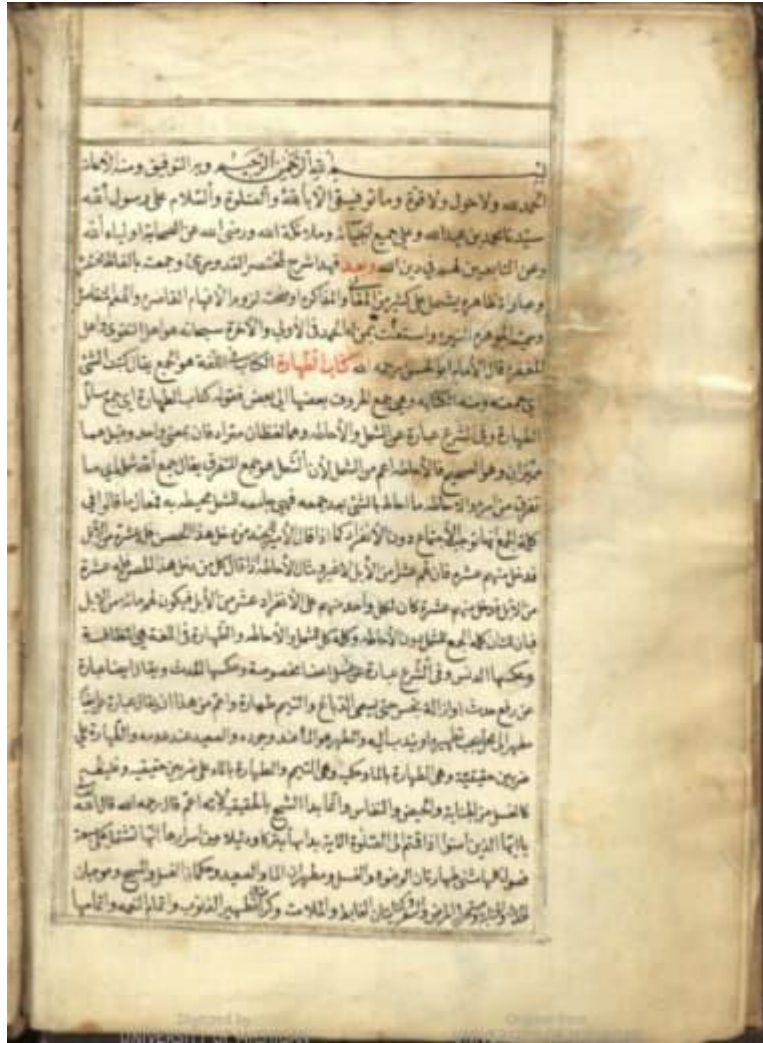 بسم الله الرحمن الرحيم وبه التوفيق ومنه الاعانة
الحمد لله ولا حول ولا قوة وما توفيقي الا بالله والصلوة والسلام على رسول الله
سيدنا محمد بن عبد الله وعلى جميع انبيائه وملائكة الله ورضى الله عن الصحابة اولياء الله
وعن التابعين لهم في دين الله وبعد فهذا شرح لمختصر القدوري وجمعته بالفاظ مختصرة
وعبارات ظاهره يشتمل على كثير من المعاني والمذاكره اوضحته لذوي الافهام القاصره والهمم المتقاصره
وسميته الجوهره النيره واستعنت بمن له الحمد في الاولى والآخرة سبحانه هو اهل التقوى واهل
المغفرة قال الامام ابو الحسن رحمه الله كتاب الطهارة الكتاب في اللغة هو الجمع يقال كتبت الشئ
اي جمعته ومنه الكتابه وهي جمع الحروف بعضها الى بعض فقوله كتاب الطهارة اي جمع مسائل
الطهارة وفي الشرع عبارة عن الشمل والاحاطه وهما لفظان مترادفان بمعنى واحد وقيل هما
متغيران وهو الصحيح فالاحاطه اعم من الشمل لأن الشمل هو جمع المتفرق يقال جمع الله شمله اي ما
تفرق من امره والاحاطه ما احاط بالشئ بعد جمعه فهي جامعه للشمل محيطه به فعلى ما قالوا في
كلمة الجمع انها توجب الاجتماع دون الانفراد كما اذا قال الامير لجنده من دخل هذا الحصن فله عشرة من الابل
فدخل منهم عشره فان لهم عشرا من الابل لا غير ومثال الاحاطه اذا قال كل من دخل هذا الحصن فله عشرة
من الابل فدخل منهم عشرة كان لكل واحد منهم على الانفراد عشر من الابل فيكون لهم مائة من الابل
فبان لك ان كلمه الجمع للشمل دون الاحاطه وكلمة كل للشمل والاحاطه والطهارة في اللغة هي النظافة
وعكسها الدنس وفي الشرع عبارة عن غسل اعضا مخصوصة وعكسها الحدث ويقال ايضا عبارة
عن رفع حدث او ازالة نجس حتى يسمى الدباغ والتيمم طهارة واعم من هذا ان يقال عبارة عن ايصال
مطهر الى محل يجب تطهيره او يندب اليه والمطهر هو الماء عند وجوده والصعيد عند عدمه والطهارة على
ضربين حقيقية وهي الطهارة بالماء وحكميه وهي التيمم والطهارة بالماء على ضربين خفيفه وغليظه
كالغسل من الجنابة والحيض والنفاس وانما بدا الشيخ بالخفيفة لانه اعم قال رحمه الله قال الله تعالى
يا ايها الذين امنوا اذا قمتم الى الصلوة الآية بدا بها تبركا ودليلا ومن اسرارها انها تشتمل على سبعة
فصول كلها مثنى طهارتان الوضوء والغسل ومطهران الماء والصعيد وحكمان الغسل والمسح وموجبان
الحدث والجنابة ومبيحان المرض والسفر وكنايتان الغايط والملامسة وكرامتان تطهير الذنوب واتمام النعمه واتمامها